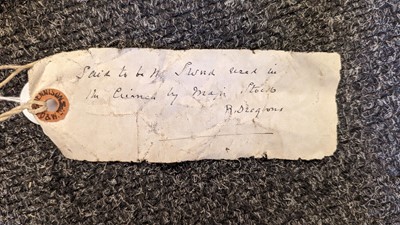 Said to be the Sword used in
the Crimea by Major Stocks
R. Dragoons